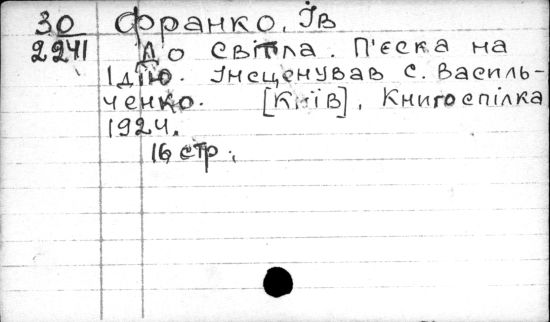 30 Франко, Ів
2241 До світла. П'єска на
1 дію. Інсценував С. Василь-
ченко. [Київ], Книгоспілка
1924.
16 стр.